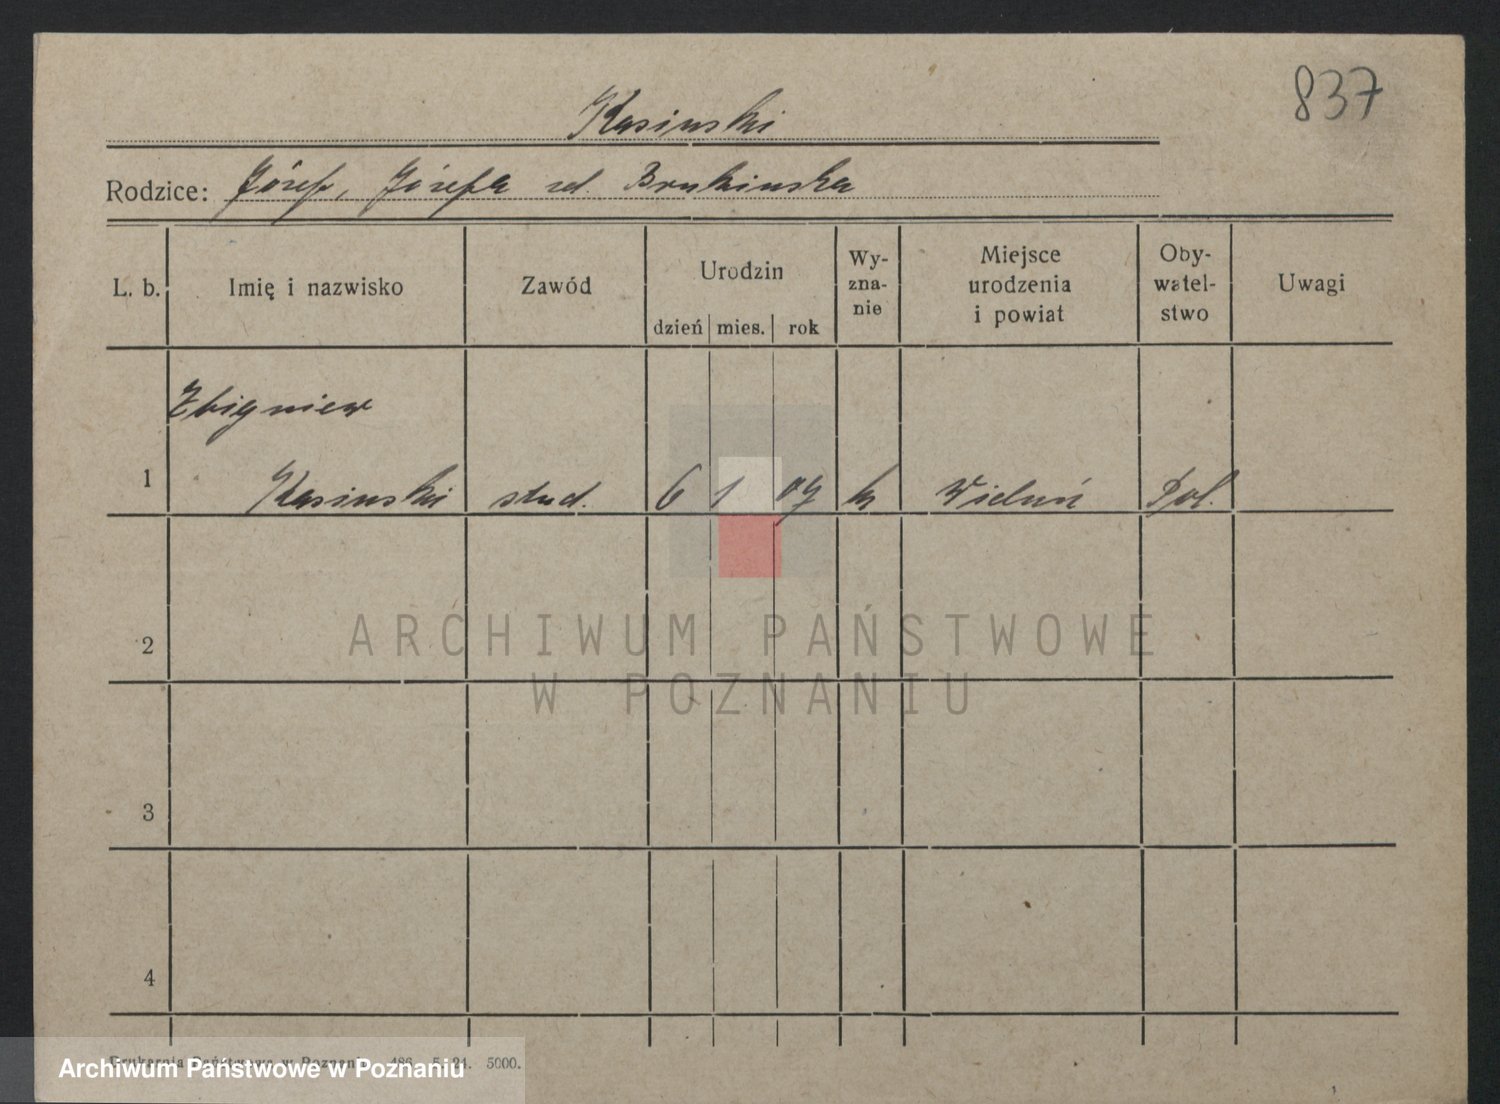 837
Kasinski
Rodzice: Józef, Józefa zd. Brukinska
L. b. Imię i nazwisko Zawód Urodzin dzień mies. rok Wy-zna-nie Miejsce urodzenia i powiat Oby-watel-stwo Uwagi
Zbigniew
1 Kasinski stud. 6 1 09 k Wieluń Pol.
2
ARCHIWUM PAŃSTWOWE
W POZNANIU
3
4
Drukarnia Państwowa w Poznaniu 486. 5. 24. 5000.
Archiwum Państwowe w Poznaniu